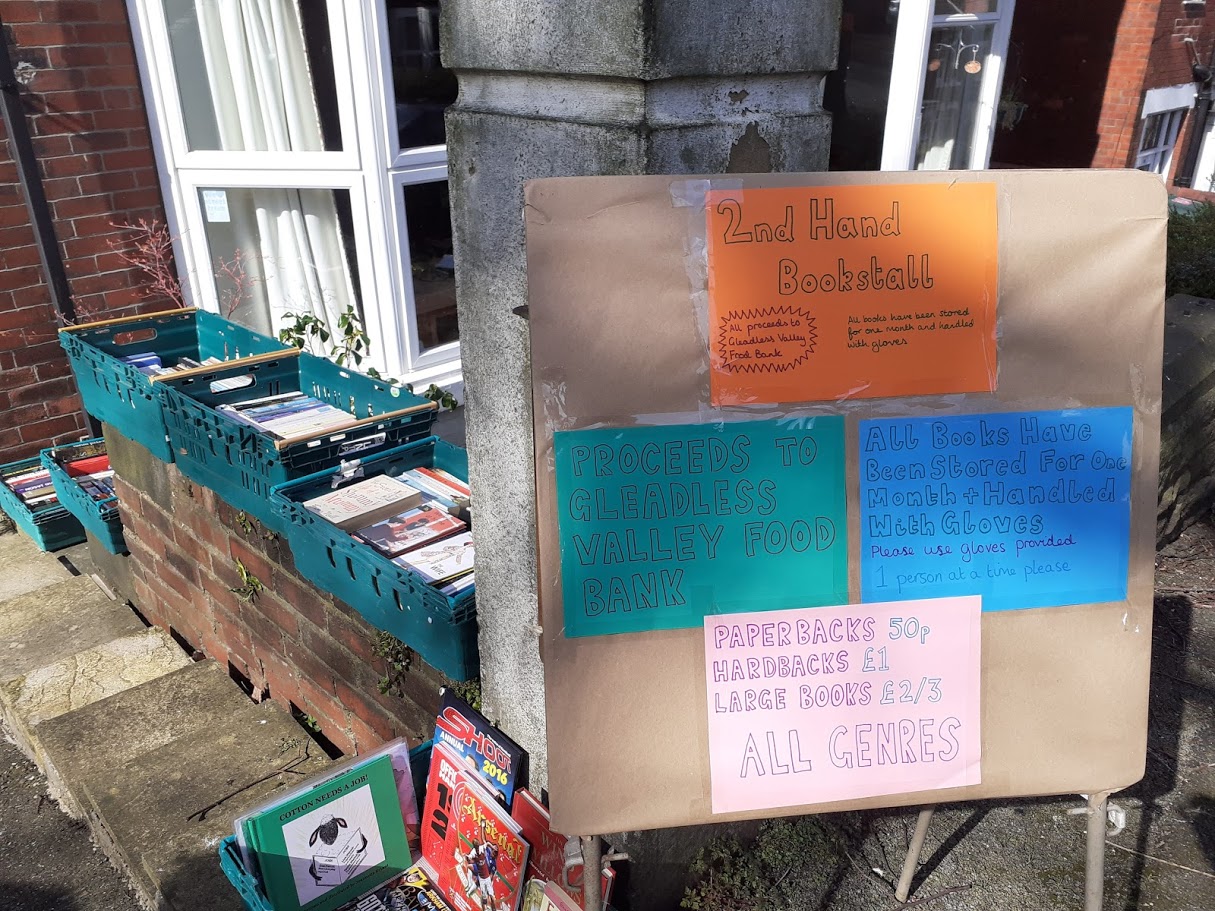 2nd Hand
Bookstall
All proceeds to
Gleadless Valley
Food Bank
All books have been stored
for one month and handled
with gloves
PROCEEDS TO
GLEADLESS
VALLEY FOOD
BANK
All Books Have
Been Stored For One
Month + Handled
With Gloves
Please use gloves provided
1 person at a time please
PAPERBACKS 50p
HARDBACKS £1
LARGE BOOKS £2/3
ALL GENRES
SHOOT
ANNUAL
2016
Arsenal
COTTON NEEDS A JOB!